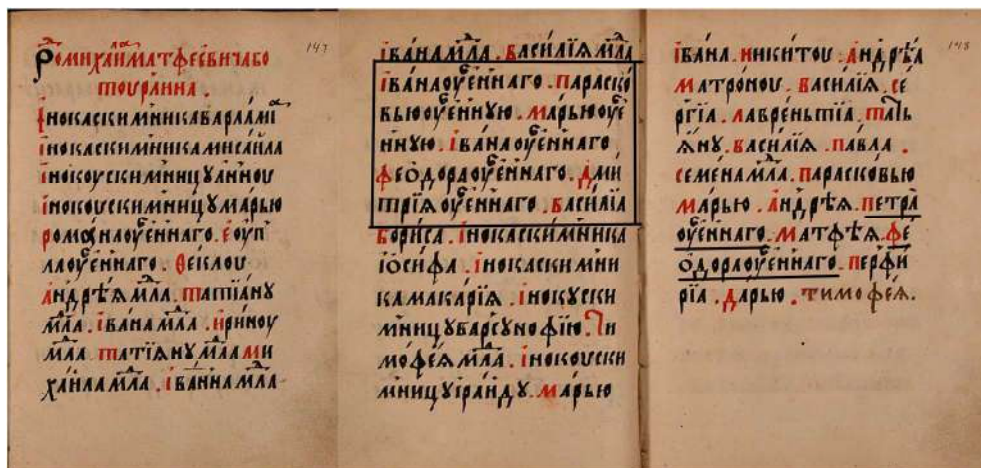 147
Рѡ михаи́ла матфе́евича бо
тоура́нна
І҆нока скимника варлаама
і҆нока скимника мисаи́ла
і҆ноку скимницу а҆нноу
і҆нокоу скимницу ма́рью
рома́на оу҆бїе́ннаго . є҆оуп
ла оу҆бїе́ннаго . ѳе́клоу
а҆ндре́ѧ мл҃а . татїа́ну
мл҃а . і҆ва́на мл҃а . и҆ри́ноу
мл҃а татїѧ́ну мл҃а ми
хаи́ла мл҃а . і҆ва́нна мл҃а
і҆ва́на мл҃а . васи́лїѧ мл҃а
і҆ва́на оу҆бїе́ннаго . параско́
вью оу҆бїе́нную . ма́рью оу҆бїе́
нную . і҆ва́на оу҆бїе́ннаго
ѳео́дора оу҆бїе́ннаго . дми
трїѧ оу҆бїе́ннаго . васи́лїа
бори́са . і҆нока скимника
іѡ́сифа . і҆нока скимни
ка мака́рїѧ . і҆ноку ски
мницу варсуноѳі́ю . ти
моѳе́ѧ мл҃а . і҆нокоу ски
мницу і҆раи́ду . ма́рью
148
і҆ва́на . ники́тоу . а҆ндрѣ́а
матро́ноу . васи́лїѧ . се́
ргїа . лавре́нтїа . тать
ѧ́ну . васи́лїѧ . па́вла .
семе́на мл҃а . параско́вью
ма́рью . а҆ндрѣ́ѧ . петра̀
оу҆бїе́ннаго . матѳѣ́ѧ . ѳе
о́дора оу҆бїе́ннаго . перфи́
рїа . да́рью . тимоѳе́ѧ .